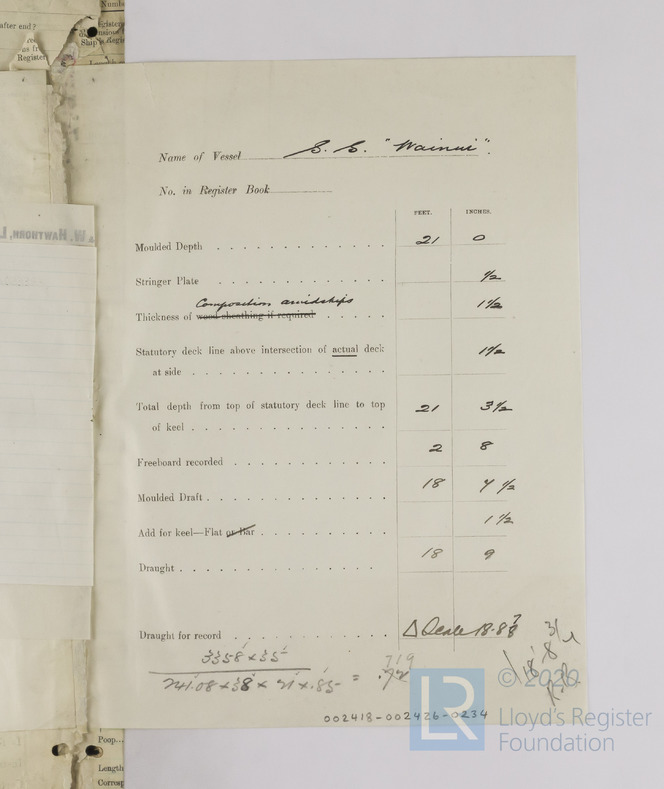 after end?
Register
Name of Vessel S. S. "Wainui".
No. in Register Book
FEET. INCHES.
Moulded Depth 21 0
Stringer Plate ½
Composition amidships
Thickness of wood sheathing if required 1½
Statutory deck line above intersection of actual deck
at side 1½
Total depth from top of statutory deck line to top
of keel 21 3½
Freeboard recorded 2 8
Moulded Draft 18 7½
Add for keel—Flat or Bar 1½
Draught 18 9
Draught for record △ Scale 18.8
3358 × 35
241.08 × 38 × 21 × .85 = .72
719
002418-002426-0234
© 2020
LR
Lloyd's Register
Foundation
W. HAWTHORN, L
Poop...
Length
Corresp